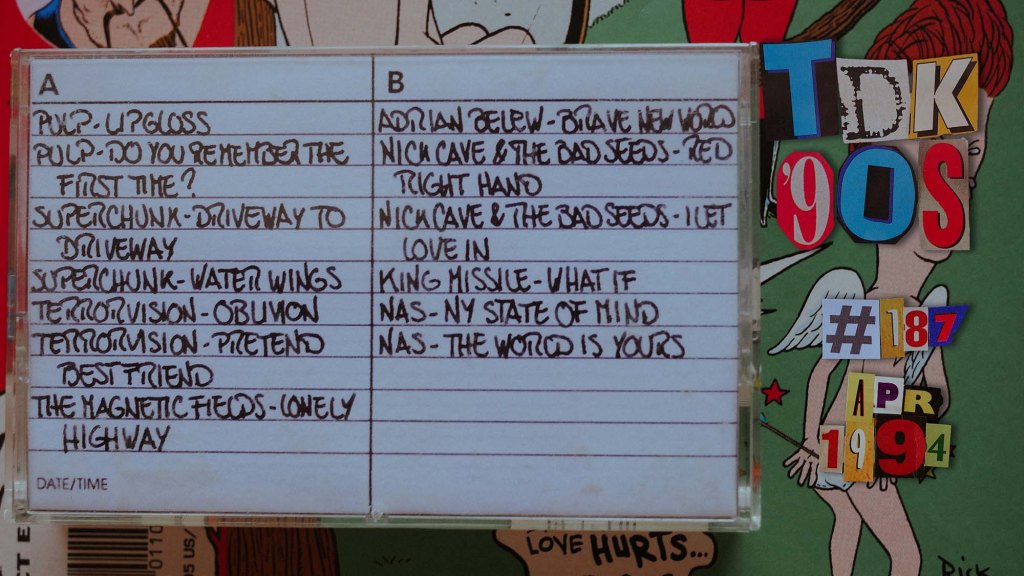 A
PULP - LIPGLOSS
PULP - DO YOU REMEMBER THE
FIRST TIME?
SUPERCHUNK - DRIVEWAY TO
DRIVEWAY
SUPERCHUNK - WATER WINGS
TERRORVISION - OBLIVION
TERRORVISION - PRETEND
BEST FRIEND
THE MAGNETIC FIELDS - LONELY
HIGHWAY
DATE/TIME
B
ADRIAN BELEW - BRAVE NEW WORLD
NICK CAVE & THE BAD SEEDS - RED
RIGHT HAND
NICK CAVE & THE BAD SEEDS - I LET
LOVE IN
KING MISSILE - WHAT IF
NAS - NY STATE OF MIND
NAS - THE WORLD IS YOURS
TDK
'90S
#187
APR
1994
LOVE HURTS...
Dick
0110
05 US/
CT E